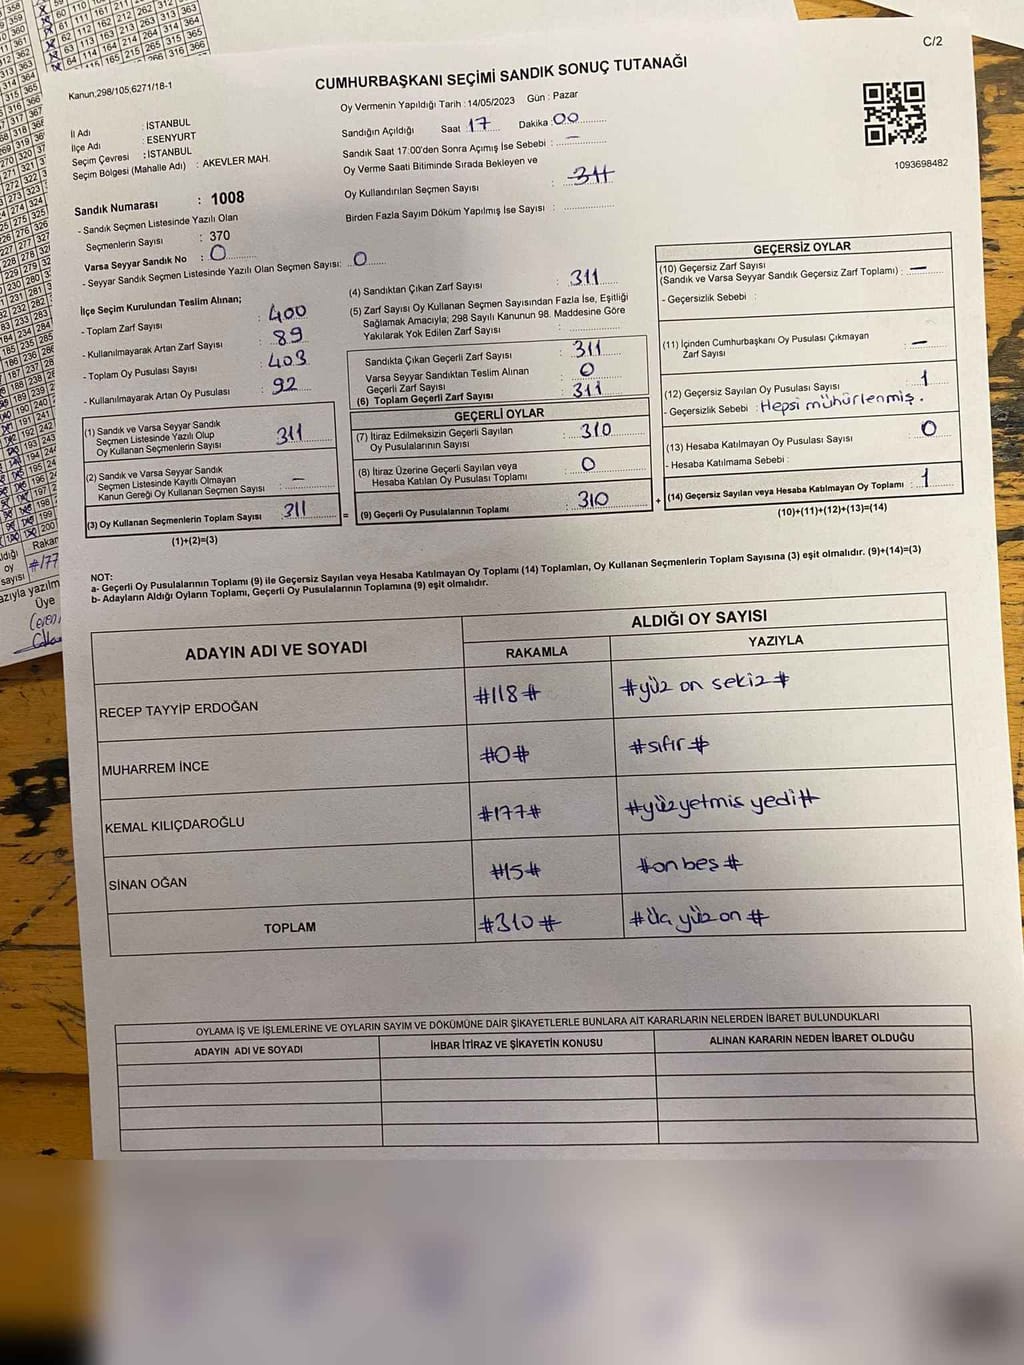 C/2
Kanun,298/105,6271/18-1
CUMHURBAŞKANI SEÇİMİ SANDIK SONUÇ TUTANAĞI
Oy Vermenin Yapıldığı Tarih : 14/05/2023 Gün : Pazar
İl Adı : İSTANBUL
İlçe Adı : ESENYURT
Seçim Çevresi : İSTANBUL
Seçim Bölgesi (Mahalle Adı) : AKEVLER MAH.
Sandığın Açıldığı Saat : 17 Dakika : 00
Sandık Saat 17:00'den Sonra Açımış İse Sebebi : —
Oy Verme Saati Bitiminde Sırada Bekleyen ve
Oy Kullandırılan Seçmen Sayısı : 311
Birden Fazla Sayım Döküm Yapılmış İse Sayısı :
1093698482
Sandık Numarası : 1008
- Sandık Seçmen Listesinde Yazılı Olan
Seçmenlerin Sayısı : 370
Varsa Seyyar Sandık No : 0
- Seyyar Sandık Seçmen Listesinde Yazılı Olan Seçmen Sayısı: 0
İlçe Seçim Kurulundan Teslim Alınan;
- Toplam Zarf Sayısı : 400
- Kullanılmayarak Artan Zarf Sayısı : 89
- Toplam Oy Pusulası Sayısı : 403
- Kullanılmayarak Artan Oy Pusulası : 92
(1) Sandık ve Varsa Seyyar Sandık
Seçmen Listesinde Yazılı Olup
Oy Kullanan Seçmenlerin Sayısı : 311
(2) Sandık ve Varsa Seyyar Sandık
Seçmen Listesinde Kayıtlı Olmayan
Kanun Gereği Oy Kullanan Seçmen Sayısı : —
(3) Oy Kullanan Seçmenlerin Toplam Sayısı : 311 =
(1)+(2)=(3)
(4) Sandıktan Çıkan Zarf Sayısı : 311
(5) Zarf Sayısı Oy Kullanan Seçmen Sayısından Fazla İse, Eşitliği
Sağlamak Amacıyla; 298 Sayılı Kanunun 98. Maddesine Göre
Yakılarak Yok Edilen Zarf Sayısı :
Sandıkta Çıkan Geçerli Zarf Sayısı : 311
Varsa Seyyar Sandıktan Teslim Alınan
Geçerli Zarf Sayısı : 0
(6) Toplam Geçerli Zarf Sayısı : 311
GEÇERLİ OYLAR
(7) İtiraz Edilmeksizin Geçerli Sayılan
Oy Pusulalarının Sayısı : 310
(8) İtiraz Üzerine Geçerli Sayılan veya
Hesaba Katılan Oy Pusulası Toplamı : 0
(9) Geçerli Oy Pusulalarının Toplamı : 310 +
GEÇERSİZ OYLAR
(10) Geçersiz Zarf Sayısı
(Sandık ve Varsa Seyyar Sandık Geçersiz Zarf Toplamı) : —
- Geçersizlik Sebebi :
(11) İçinden Cumhurbaşkanı Oy Pusulası Çıkmayan
Zarf Sayısı : —
(12) Geçersiz Sayılan Oy Pusulası Sayısı : 1
- Geçersizlik Sebebi : Hepsi mühürlenmiş.
(13) Hesaba Katılmayan Oy Pusulası Sayısı : 0
- Hesaba Katılmama Sebebi :
(14) Geçersiz Sayılan veya Hesaba Katılmayan Oy Toplamı : 1
(10)+(11)+(12)+(13)=(14)
NOT:
a- Geçerli Oy Pusulalarının Toplamı (9) ile Geçersiz Sayılan veya Hesaba Katılmayan Oy Toplamı (14) Toplamları, Oy Kullanan Seçmenlerin Toplam Sayısına (3) eşit olmalıdır. (9)+(14)=(3)
b- Adayların Aldığı Oyların Toplamı, Geçerli Oy Pusulalarının Toplamına (9) eşit olmalıdır.
ADAYIN ADI VE SOYADI
ALDIĞI OY SAYISI
RAKAMLA YAZIYLA
RECEP TAYYİP ERDOĞAN #118# #yüz on sekiz#
MUHARREM İNCE #0# #sıfır#
KEMAL KILIÇDAROĞLU #177# #yüzyetmis yedi#
SİNAN OĞAN #15# #onbeş#
TOPLAM #310# #üç yüz on#
OYLAMA İŞ VE İŞLEMLERİNE VE OYLARIN SAYIM VE DÖKÜMÜNE DAİR ŞİKAYETLERLE BUNLARA AİT KARARLARIN NELERDEN İBARET BULUNDUKLARI
ADAYIN ADI VE SOYADI İHBAR İTİRAZ VE ŞİKAYETİN KONUSU ALINAN KARARIN NEDEN İBARET OLDUĞU